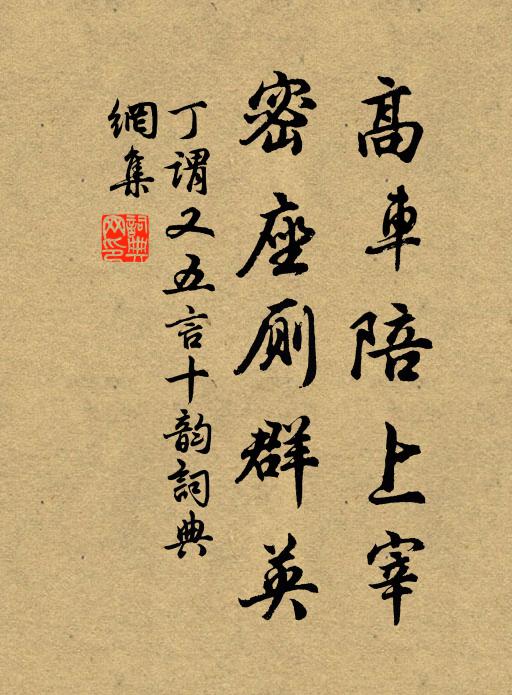 高車陪上宰
密座厠群英
丁謂又五言十韵詞典
網集
詞典
网印